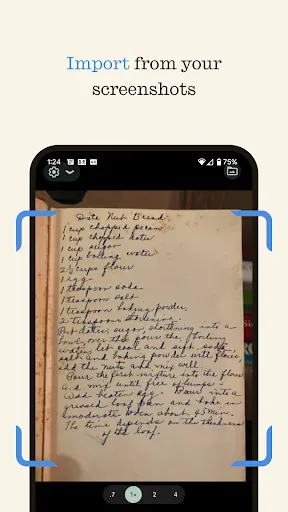 Import from your
screenshots
1:24
75%
Date Nut Bread
1 cup chopped pecans
1 cup chopped dates
1 cup sugar
1 cup boiling water
2½ cups flour
1 egg
1 teaspoon soda
1 teaspoon salt
1 teaspoon baking powder
2 teaspoons shortening
Put dates, sugar, shortening into a
bowl, over this pour the boiling
water, let cool and sift soda,
salt and baking powder with flour,
add the nuts and mix well.
Pour the first mixture into the flour
and mix until free of lumps.
Add beaten egg. Pour into a
greased loaf pan and bake in
moderate oven about 45 min.
The time depends on the thickness
of the loaf.
.7 1x 2 4